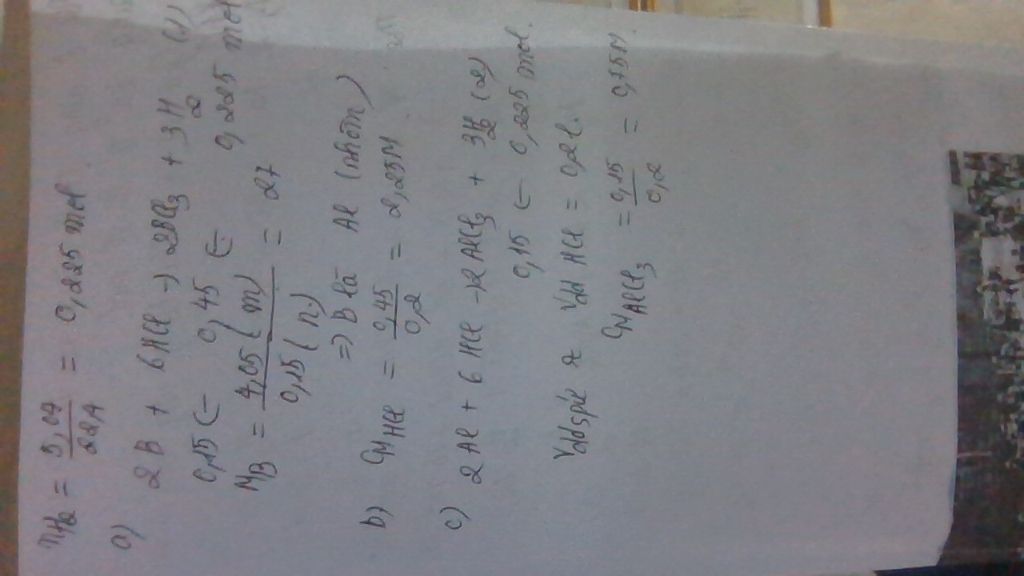 nH2 = 5,04/22,4 = 0,225 mol
a) 2B + 6HCl → 2BCl3 + 3H2 (1)
0,15 ← 0,45 ← 0,225 mol
MB = 4,05 (m) / 0,15 (n) = 27
=> B là Al (nhôm)
b) CM HCl = 0,45/0,2 = 2,25M
c) 2Al + 6HCl → 2AlCl3 + 3H2 (2)
0,15 ← 0,225 mol.
Vdd spứ ≈ Vdd HCl = 0,2 l.
CM AlCl3 = 0,15/0,2 = 0,75M.